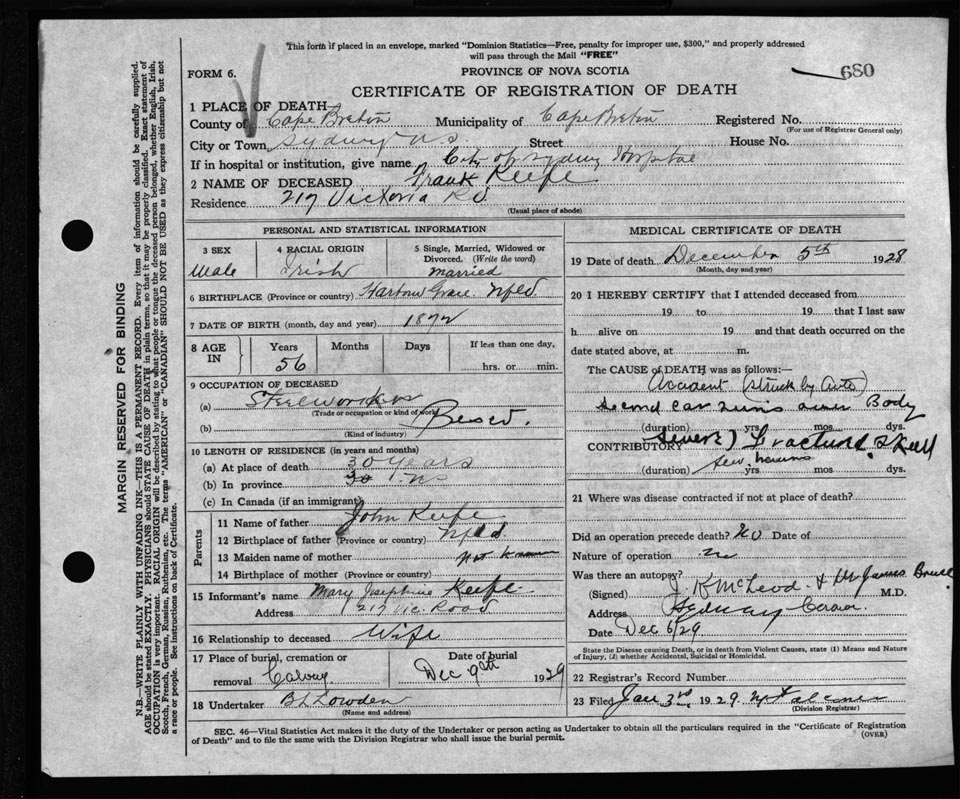 This form if placed in an envelope, marked "Dominion Statistics—Free, penalty for improper use, $300," and properly addressed
will pass through the Mail "FREE"
FORM 6.
PROVINCE OF NOVA SCOTIA
680
CERTIFICATE OF REGISTRATION OF DEATH
1 PLACE OF DEATH
County of Cape Breton Municipality of Cape Breton Registered No.
(For use of Registrar General only)
City or Town Sydney N.S. Street House No.
If in hospital or institution, give name City of Sydney Hospital
2 NAME OF DECEASED Frank Keefe
Residence 217 Victoria Rd
(Usual place of abode)
PERSONAL AND STATISTICAL INFORMATION
3 SEX 4 RACIAL ORIGIN 5 Single, Married, Widowed or
Divorced. (Write the word)
Male Irish married
6 BIRTHPLACE (Province or country) Harbour Grace Nfld.
7 DATE OF BIRTH (month, day and year) 1872
8 AGE IN Years Months Days If less than one day,
56 hrs. or min.
9 OCCUPATION OF DECEASED
(a) Steelworker
(Trade or occupation or kind of work)
(b) Besco.
(Kind of industry)
10 LENGTH OF RESIDENCE (in years and months)
(a) At place of death 30 years
(b) In province 30
(c) In Canada (if an immigrant)
Parents
11 Name of father John Keefe
12 Birthplace of father (Province or country) Nfld
13 Maiden name of mother not known
14 Birthplace of mother (Province or country)
15 Informant's name Mary Josephine Keefe
Address 217 Vic. Road
16 Relationship to deceased Wife
17 Place of burial, cremation or Date of burial
removal Calvary Dec 9th 1929
18 Undertaker B L Lowden
(Name and address)
MEDICAL CERTIFICATE OF DEATH
19 Date of death December 5th 1928
(Month, day and year)
20 I HEREBY CERTIFY that I attended deceased from
19 to 19 that I last saw
h alive on 19 and that death occurred on the
date stated above, at m.
The CAUSE OF DEATH was as follows:—
Accident (struck by Auto)
second car runs over Body
(duration) yrs mos. dys.
CONTRIBUTORY (severe) Fractured Skull
(duration) few hours yrs mos dys.
21 Where was disease contracted if not at place of death?
Did an operation precede death? No Date of
Nature of operation
Was there an autopsy?
(Signed) J. K McLeod & Dr James Bruce M.D.
Address Sydney Coroner
Date Dec 6/29
State the Disease causing Death, or in Death from Violent Causes, state (1) Means and Nature
of Injury, (2) whether Accidental, Suicidal or Homicidal.
22 Registrar's Record Number
23 Filed Jan 3rd 1929.
(Division Registrar)
SEC. 46—Vital Statistics Act makes it the duty of the Undertaker or person acting as Undertaker to obtain all the particulars required in the "Certificate of Registration
of Death" and to file the same with the Division Registrar who shall issue the burial permit.
(OVER)
MARGIN RESERVED FOR BINDING
N.B.—WRITE PLAINLY WITH UNFADING INK—THIS IS A PERMANENT RECORD. Every item of information should be carefully supplied.
AGE should be stated EXACTLY. PHYSICIANS should STATE CAUSE OF DEATH in plain terms, so that it may be properly classified. Exact statement of
OCCUPATION is very important. RACIAL ORIGIN will be described by stating to what people or tongue the deceased person belonged, whether English, Irish,
Scotch, French, German, Russian, Ruthenian, etc. The terms "AMERICAN" or "CANADIAN" SHOULD NOT BE USED as they express citizenship but not
a race or people. See instructions on back of Certificate.